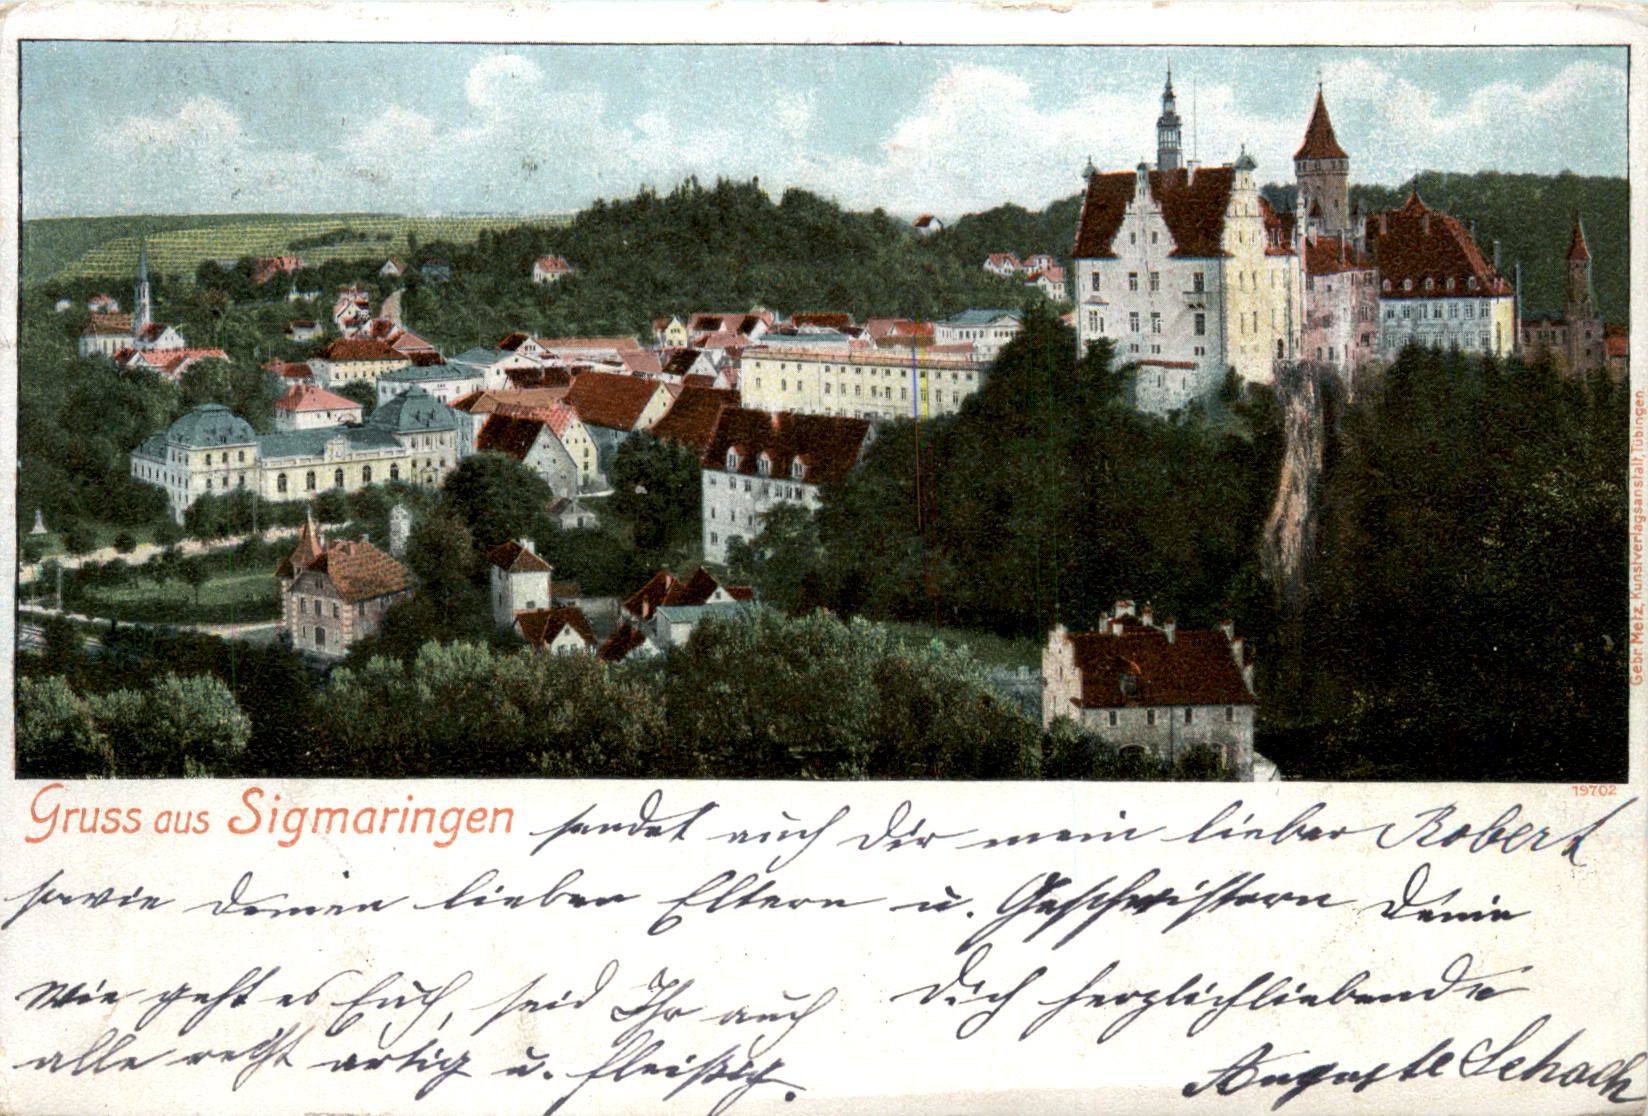 Gebr. Metz, Kunstverlagsanstalt, Tübingen
19702
Gruss aus Sigmaringen sendet auch Dir mein lieber Robert
sowie Deinen lieben Eltern u. Geschwistern Deine
Dich herzlichliebende
Auguste Schach
Wie geht es Euch, seid Ihr auch
alle recht artig u. fleißig.